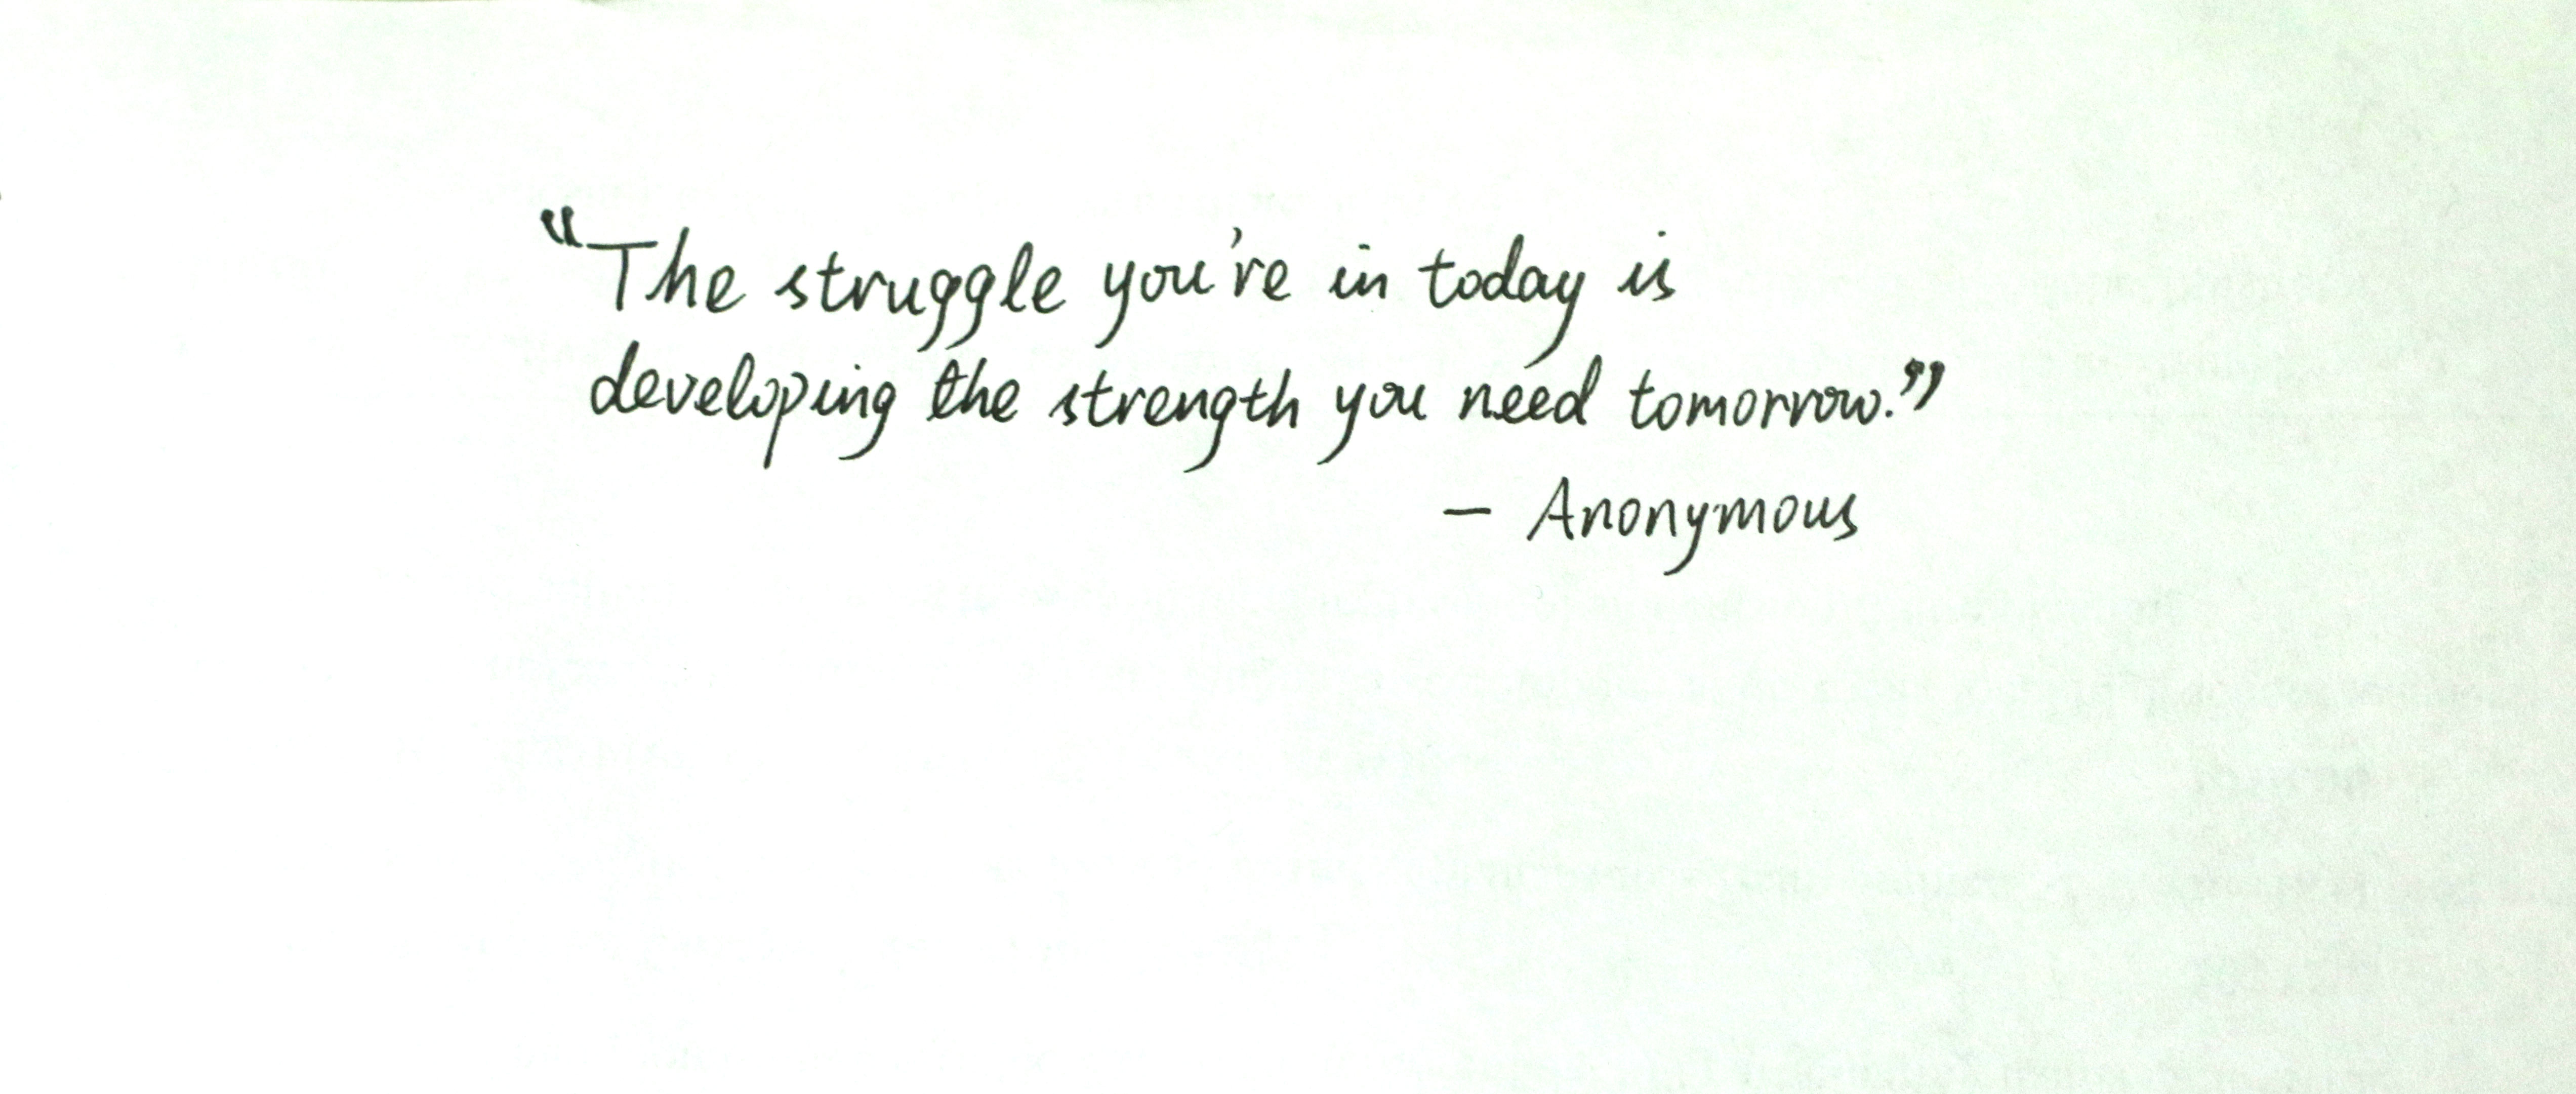 “The struggle you're in today is
developing the strength you need tomorrow.”
— Anonymous